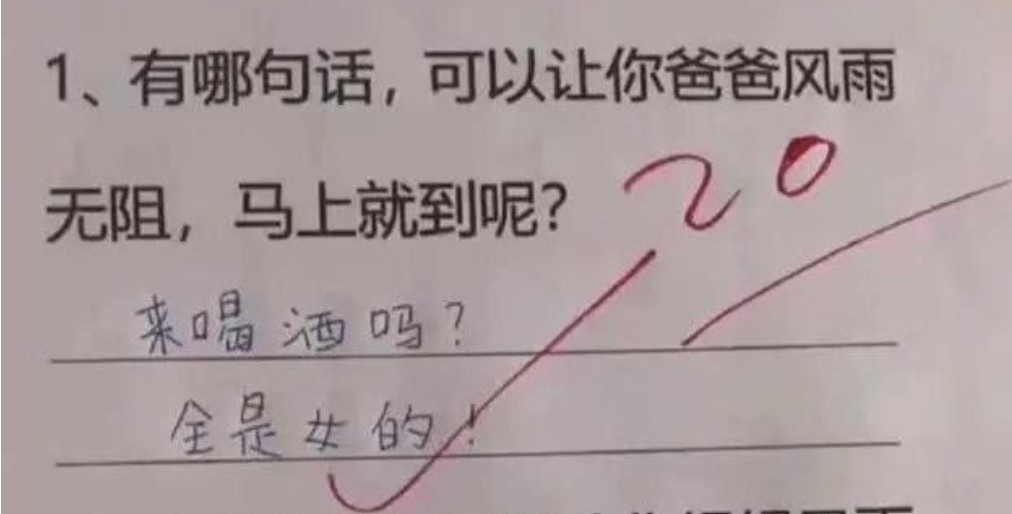 1、有哪句话，可以让你爸爸风雨
无阻，马上就到呢？
20
来喝酒吗？
全是女的！